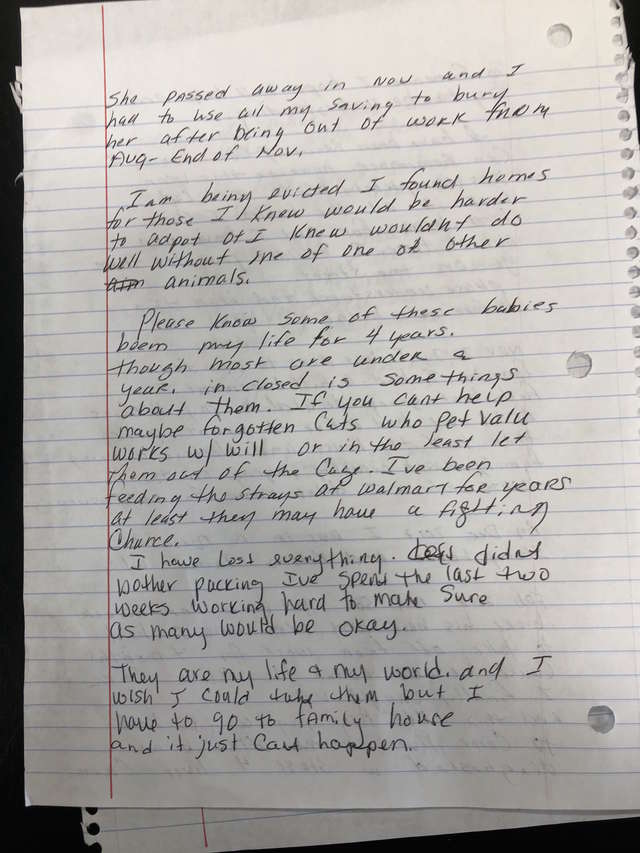 She passed away in Nov and I
had to use all my saving to bury
her after being out of work from
Aug- End of Nov.
I am being evicted I found homes
for those I knew would be harder
to adpot or I knew wouldnt do
well without me of one of other
animals.
Please know some of these babies
been my life for 4 years.
though most are under a
year. in closed is some things
about them. If you cant help
maybe forgotten Cats who Pet Valu
works w/ will or in the least let
them out of the Cage. I've been
feeding the strays at walmart for years
at least they may have a fighting
Chance.
I have loss everything. didnt
bother packing Ive spent the last two
weeks working hard to make sure
as many would be okay.
They are my life & my world. and I
wish I could take them but I
have to go to family house
and it just cant happen.